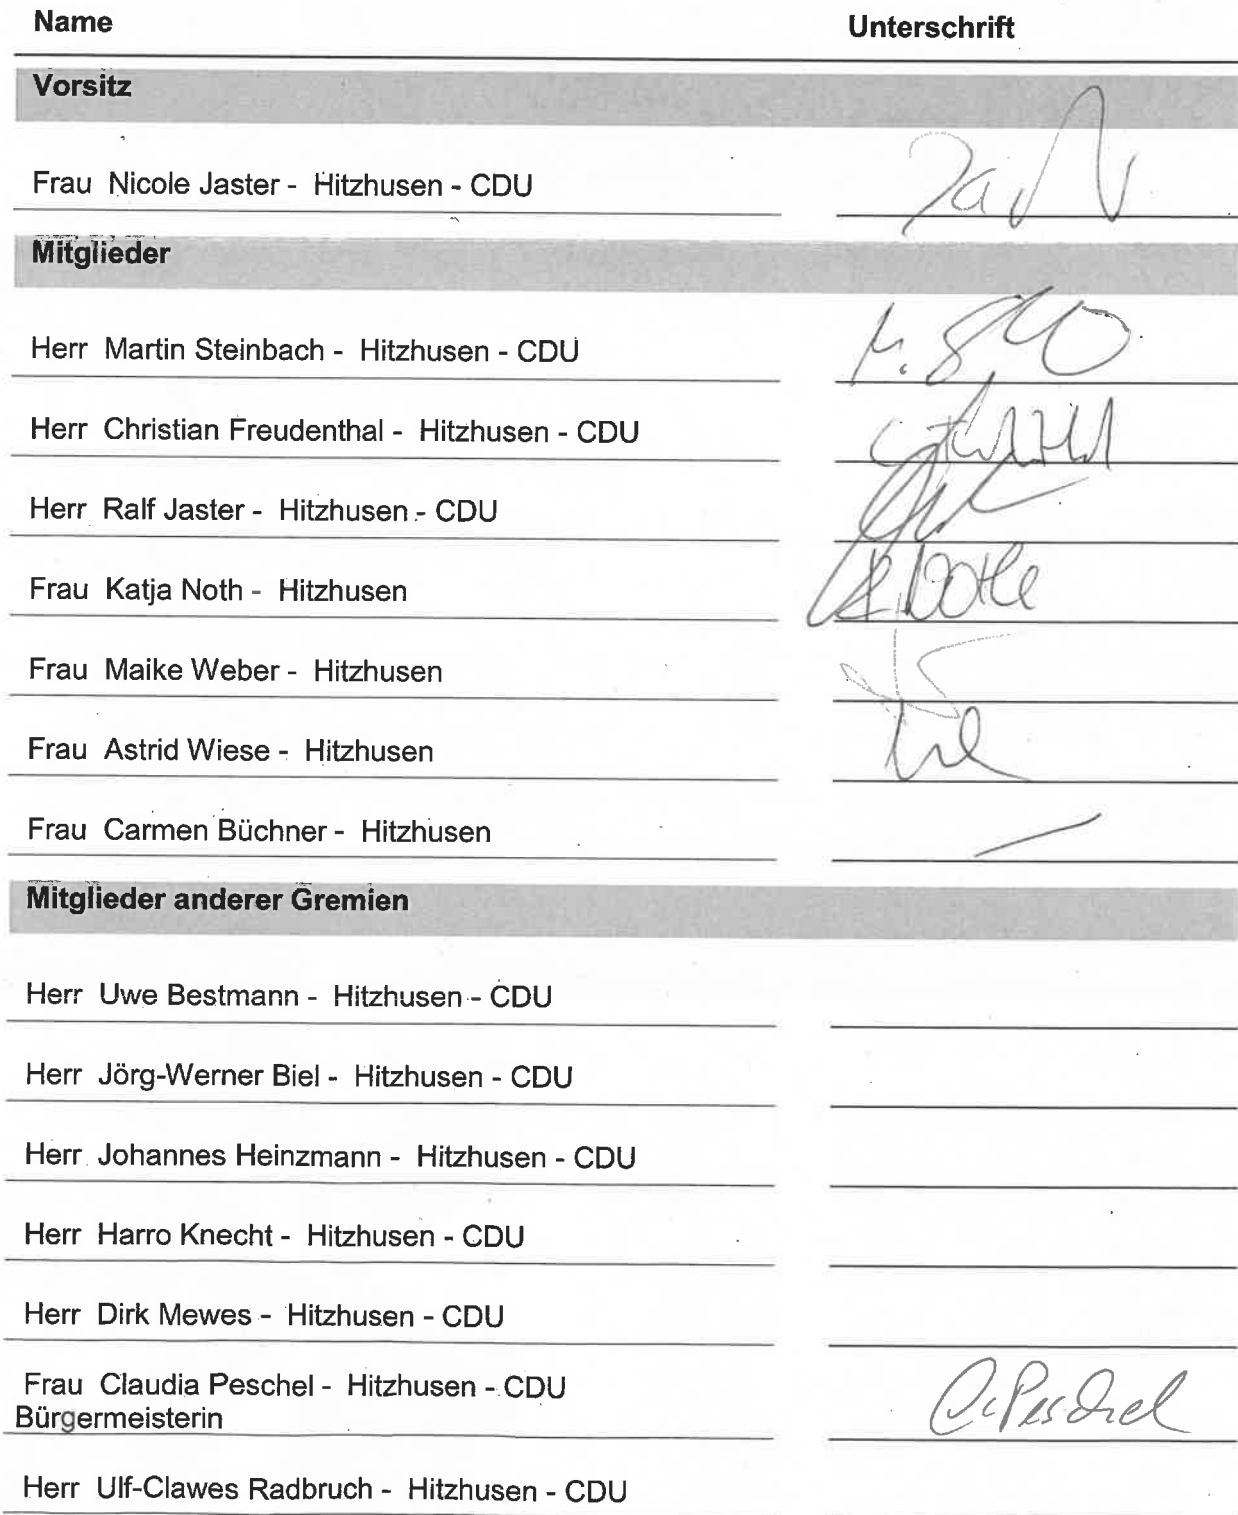 Name Unterschrift
Vorsitz
Frau Nicole Jaster - Hitzhusen - CDU
Mitglieder
Herr Martin Steinbach - Hitzhusen - CDU
Herr Christian Freudenthal - Hitzhusen - CDU
Herr Ralf Jaster - Hitzhusen - CDU
Frau Katja Noth - Hitzhusen
Frau Maike Weber - Hitzhusen
Frau Astrid Wiese - Hitzhusen
Frau Carmen Büchner - Hitzhusen
Mitglieder anderer Gremien
Herr Uwe Bestmann - Hitzhusen - CDU
Herr Jörg-Werner Biel - Hitzhusen - CDU
Herr Johannes Heinzmann - Hitzhusen - CDU
Herr Harro Knecht - Hitzhusen - CDU
Herr Dirk Mewes - Hitzhusen - CDU
Frau Claudia Peschel - Hitzhusen - CDU C. Peschel
Bürgermeisterin
Herr Ulf-Clawes Radbruch - Hitzhusen - CDU